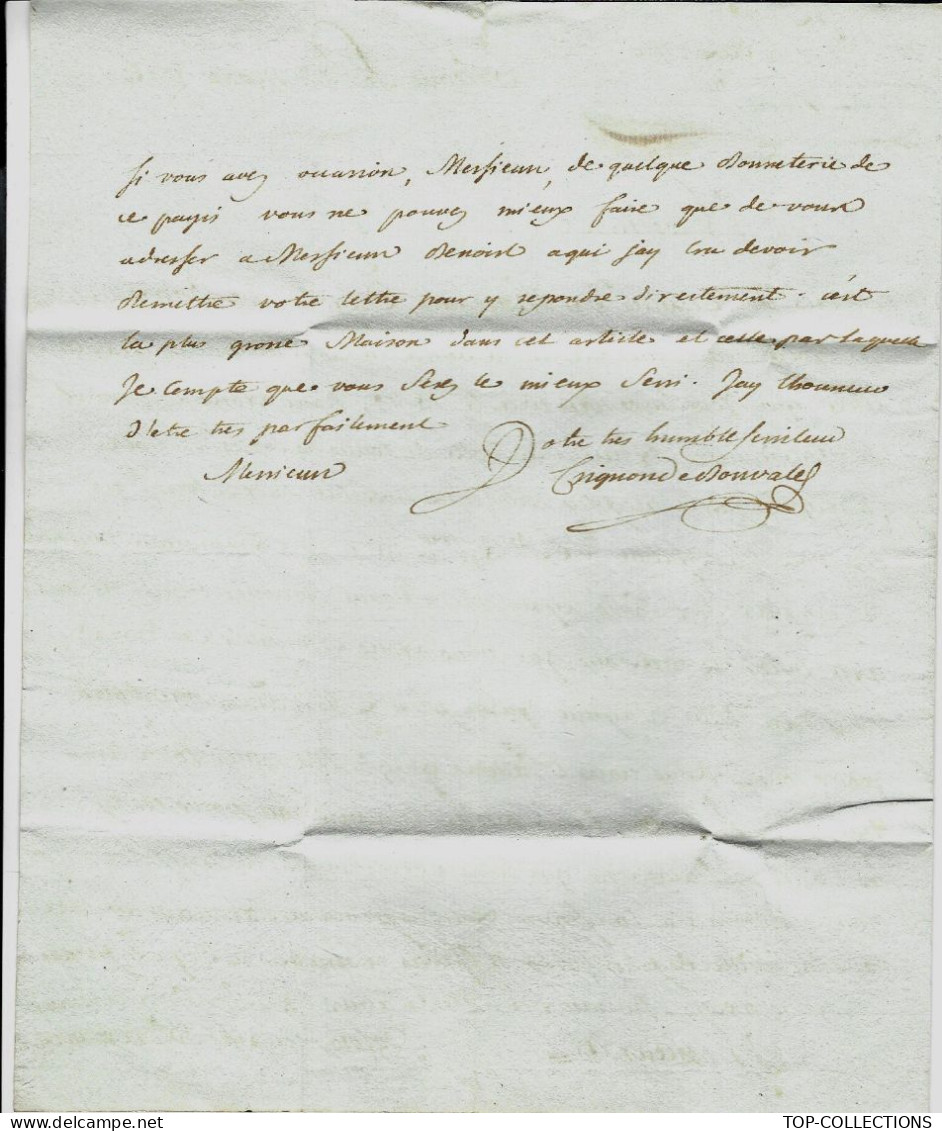 Si vous avez occasion, Messieur, de quelque Bonneterie de
ce payis vous ne pouvez mieux faire que de vous
adresser a Messieur Benoist a qui jay Cru devoir
Remettre votre lettre pour y repondre directement. c'est
la plus grosse Maison dans cet article et celle par laquelle
Je Compte que vous Serez le mieux Servi. Jay lhonneur
d'etre tres parfaitement Votre tres humble Serviteur
Messieur
TOP-COLLECTIONS